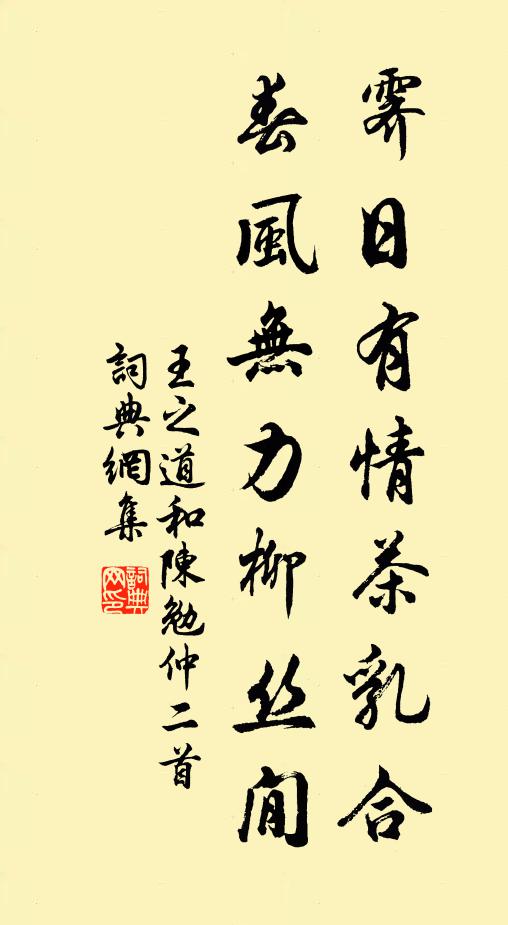 霽日有情茶乳合
春風無力柳丝閒
王之道和陳勉仲二首
詞典網集
詞典网印